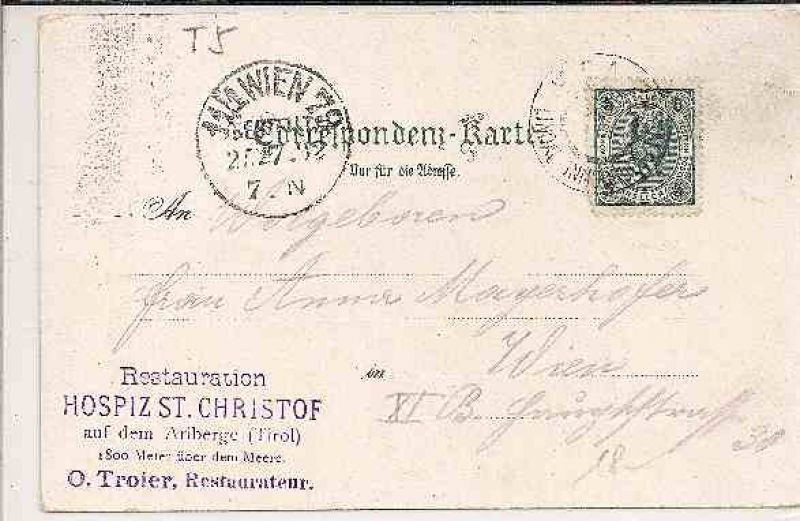 T5
WIEN
Correspondenz-Karte
Nur für die Adresse.
7. N
An Wolgeboren
Frau Anna Mayerhofer
in Wien
XI B.
30
18
Restauration
HOSPIZ ST. CHRISTOF
auf dem Arlberge (Tirol)
1800 Meter über dem Meere.
O. Troier, Restaurateur.